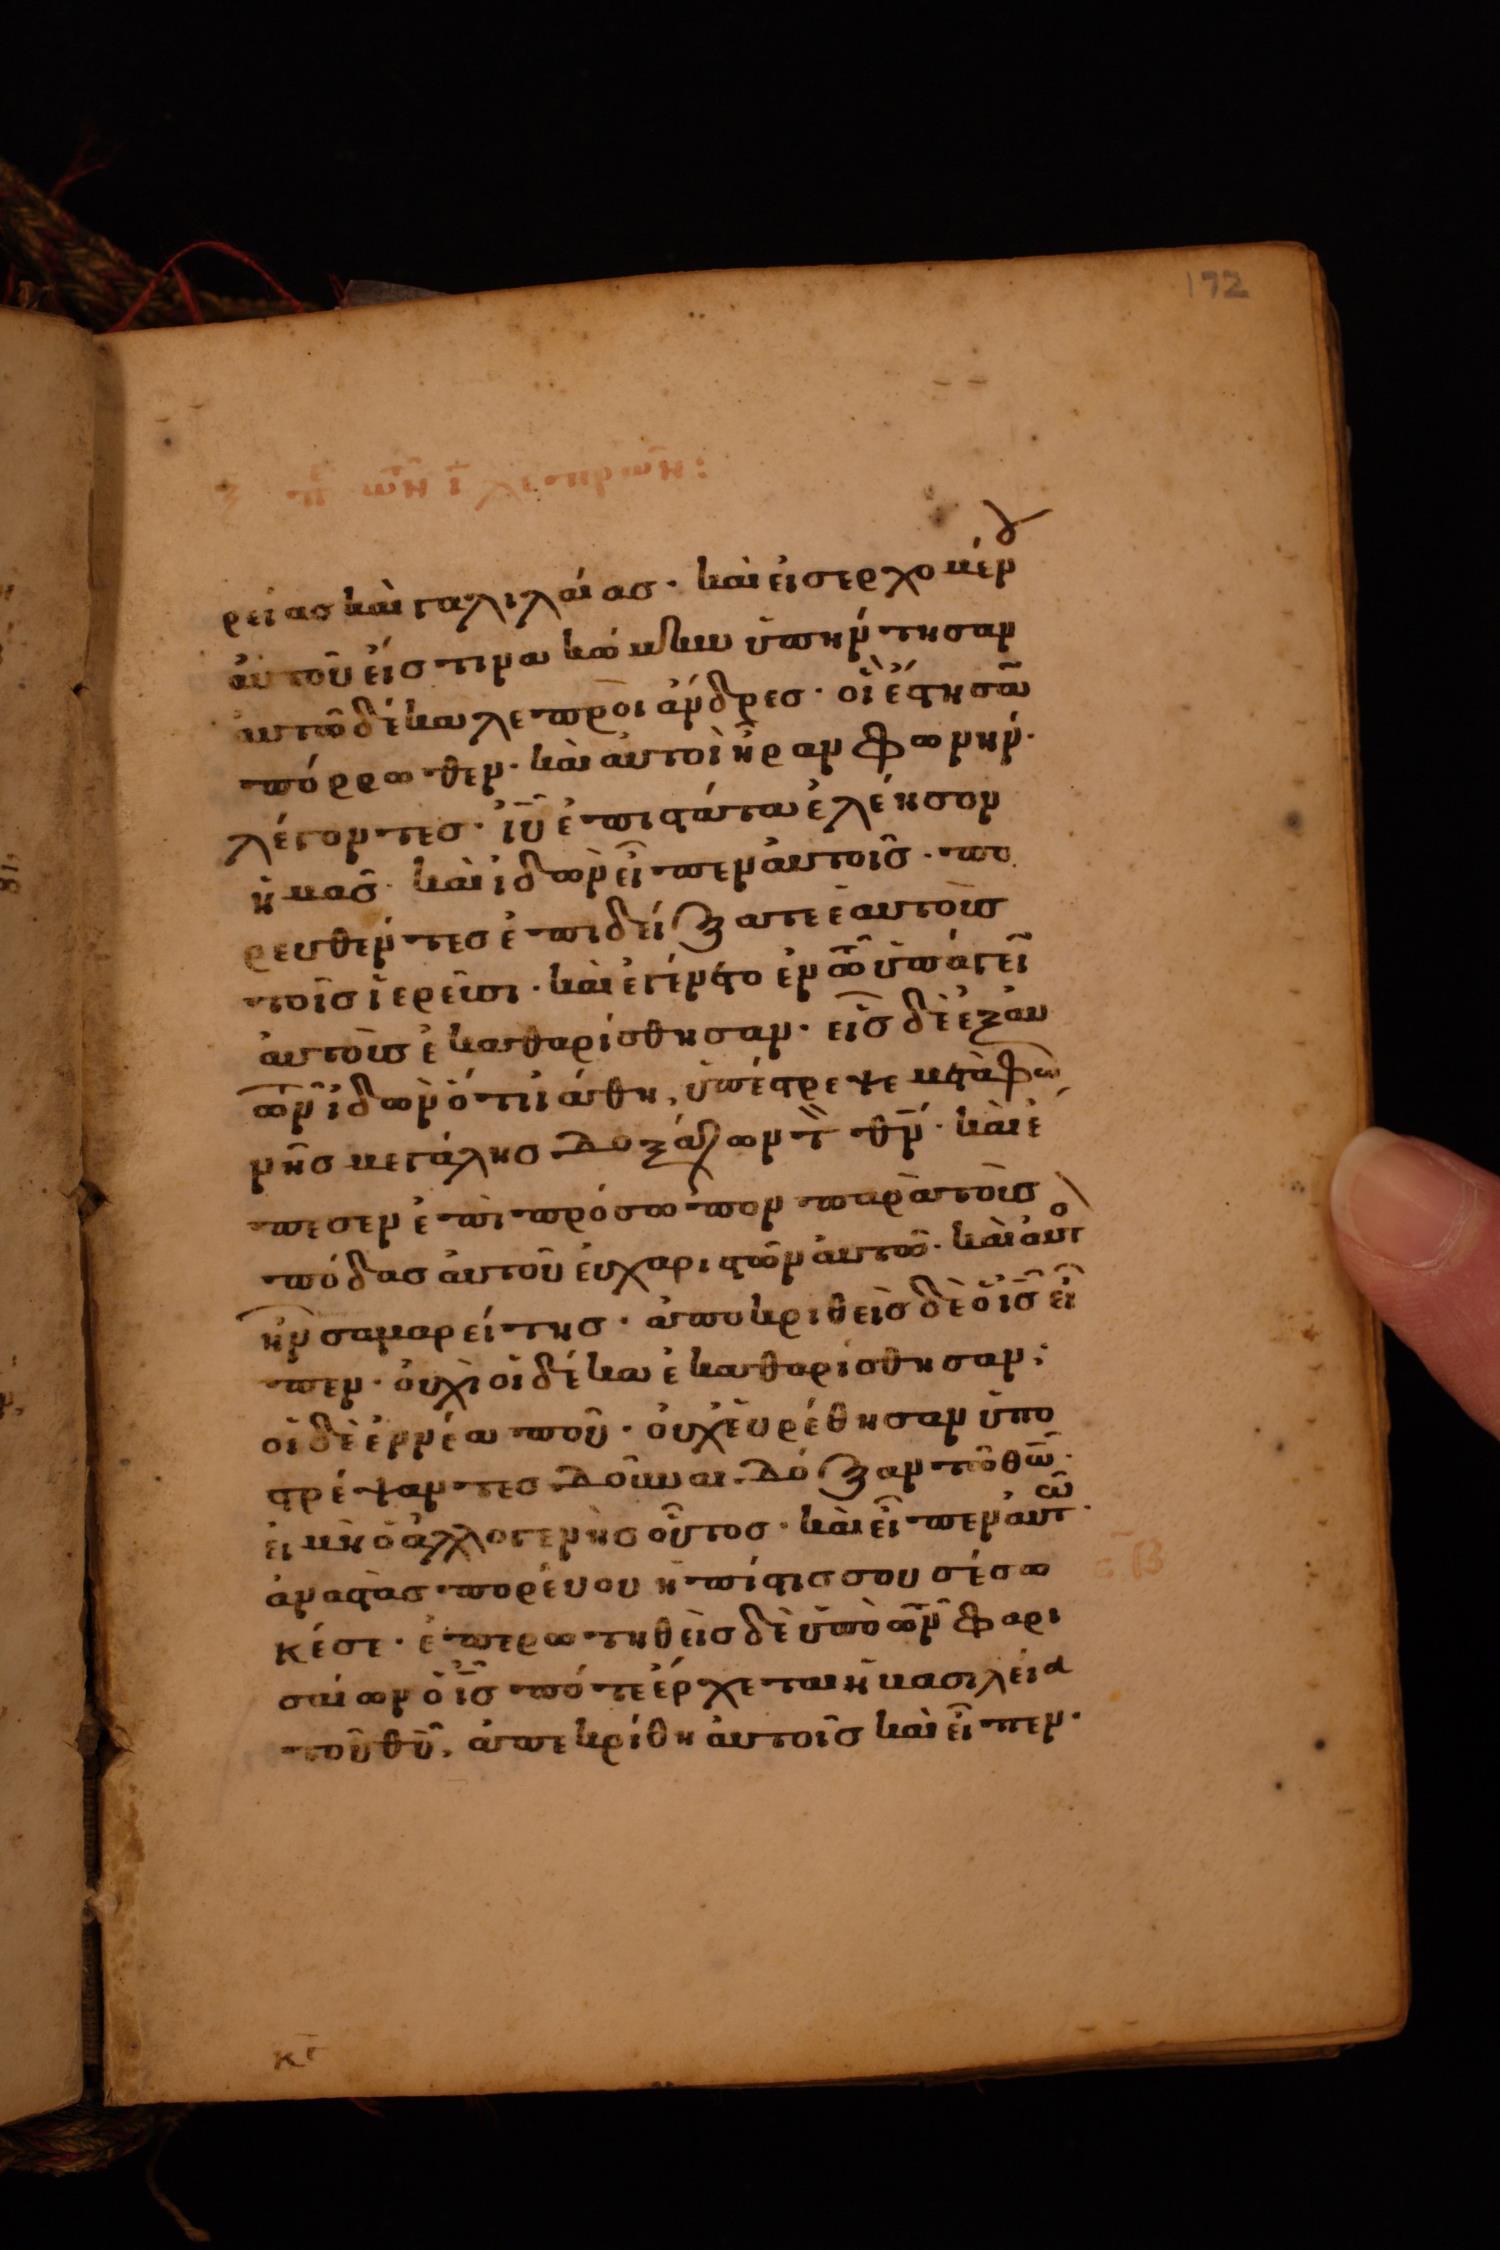 172
ρείας καὶ γαλιλαίας · καὶ εἰσερχομέν
αὐτοῦ εἴς τινα κώμην ὑπήντησαν
αὐτῶ δέκα λεπροὶ ἄνδρες · οἳ ἔστησαν
πόρρωθεν · καὶ αὐτοὶ ἦραν φωνήν ·
λέγοντες · ἰῦ ἐπιστάτα ἐλέησον
ἡμᾶς · καὶ ἰδὼν εἶπεν αὐτοῖς · πο
ρευθέντες ἐπιδείξατε ἑαυτοὺς
τοῖς ἱερεῦσι · καὶ ἐγένετο ἐν τῶ ὑπάγειν
αὐτοὺς ἐκαθαρίσθησαν · εἷς δὲ ἐξ αὐ
τῶν ἰδὼν ὅτι ἰάθη, ὑπέστρεψε μετὰ φω
νῆς μεγάλης δοξάζων τὸν θν · καὶ ἔ
πεσεν ἐπὶ πρόσωπον παρὰ τοὺς
πόδας αὐτοῦ εὐχαριστῶν αὐτῶ · καὶ αὐτὸ
ἦν σαμαρείτης · ἀποκριθεὶς δὲ ὁ ἰς εἶ
πεν · οὐχὶ οἱ δέκα ἐκαθαρίσθησαν ;
οἱ δὲ ἐννέα ποῦ · οὐχ εὑρέθησαν ὑπο
στρέψαντες δοῦναι δόξαν τῶ θῶ ·
εἰ μὴ ὁ ἀλλογενὴς οὗτος · καὶ εἶπεν αὐτῶ ·
ἀναστὰς πορεύου ἡ πίστις σου σέσω
κέσε · ἐπερωτηθεὶς δὲ ὑπὸ τῶν φαρι
σαίων ὁ ἰς πότε ἔρχεται ἡ βασιλεία
τοῦ θῦ, ἀπεκρίθη αὐτοῖς καὶ εἶπεν ·